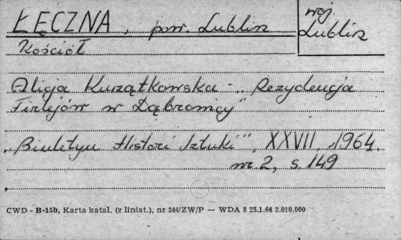 ŁĘCZNA, pow. Lublin
woj. Lublin
Kościół
Alicja Kurzątkowska - "Rezydencja
Firlejów w Dąbrownicy"
"Biuletyn Historii Sztuki", XXVII, 1964.
nr. 2, s. 149
CWD - B-15b, Karta katal. (z liniat.), nr 244/ZW/P — WDA 8 25.1.64 2.010.000